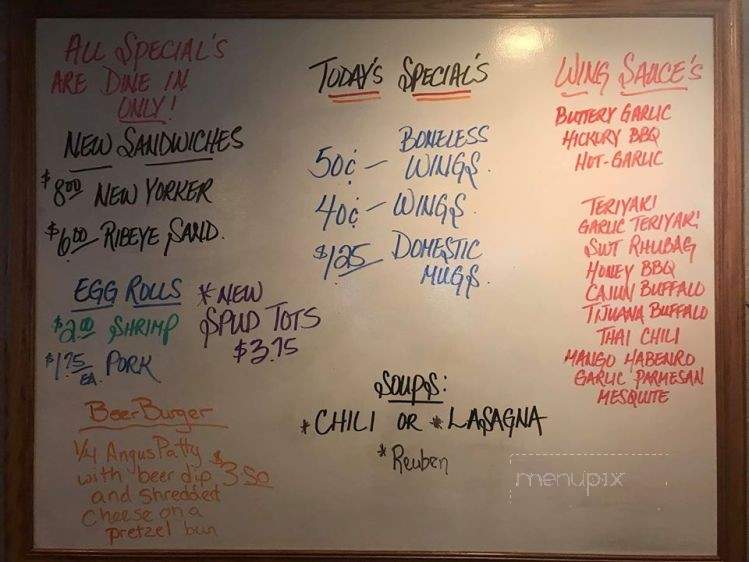 ALL SPECIAL'S
ARE DINE IN
ONLY!
NEW SANDWICHES
$8.00 NEW YORKER
$6.00 RIBEYE SAND.
EGG ROLLS
$2.00 SHRIMP
$1.75 EA. PORK
*NEW
SPUD TOTS
$3.75
BeerBurger
1/4 Angus Patty
with beer dip
and shredded
cheese on a
pretzel bun
$3.50
TODAY'S SPECIAL'S
50¢ - BONELESS
WINGS.
40¢ - WINGS.
$1.25 DOMESTIC
MUGS.
SOUPS:
*CHILI OR *LASAGNA
*Reuben
WING SAUCE'S
BUTTERY GARLIC
HICKORY BBQ
HOT-GARLIC
TERIYAKI
GARLIC TERIYAKI
SWT RHUBAG
HONEY BBQ
CAJUN BUFFALO
TIJUANA BUFFALO
THAI CHILI
MANGO HABENRO
GARLIC PARMESAN
MESQUITE
menupix